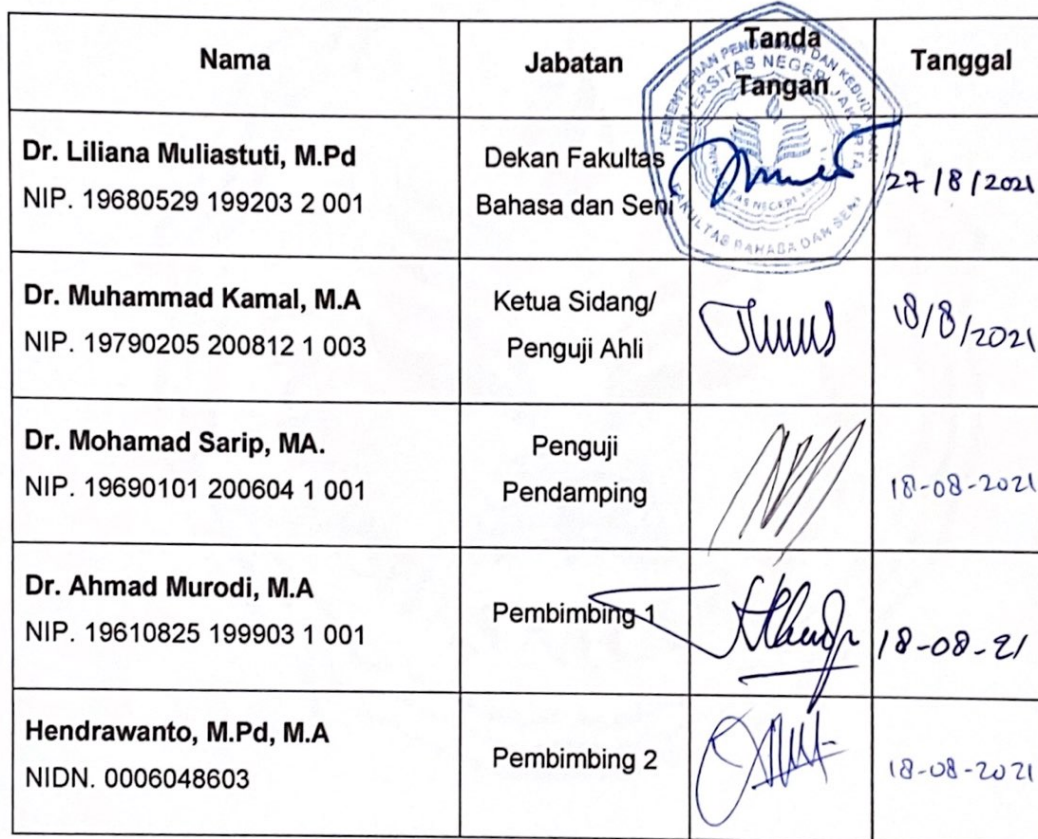 Nama
Jabatan
Tanda
Tangan
Tanggal
Dr. Liliana Muliastuti, M.Pd
NIP. 19680529 199203 2 001
Dekan Fakultas
Bahasa dan Seni
27/8/2021
Dr. Muhammad Kamal, M.A
NIP. 19790205 200812 1 003
Ketua Sidang/
Penguji Ahli
18/8/2021
Dr. Mohamad Sarip, MA.
NIP. 19690101 200604 1 001
Penguji
Pendamping
18-08-2021
Dr. Ahmad Murodi, M.A
NIP. 19610825 199903 1 001
Pembimbing 1
18-08-21
Hendrawanto, M.Pd, M.A
NIDN. 0006048603
Pembimbing 2
18-08-2021
UNIVERSITAS NEGERI JAKARTA
FAKULTAS BAHASA DAN SENI